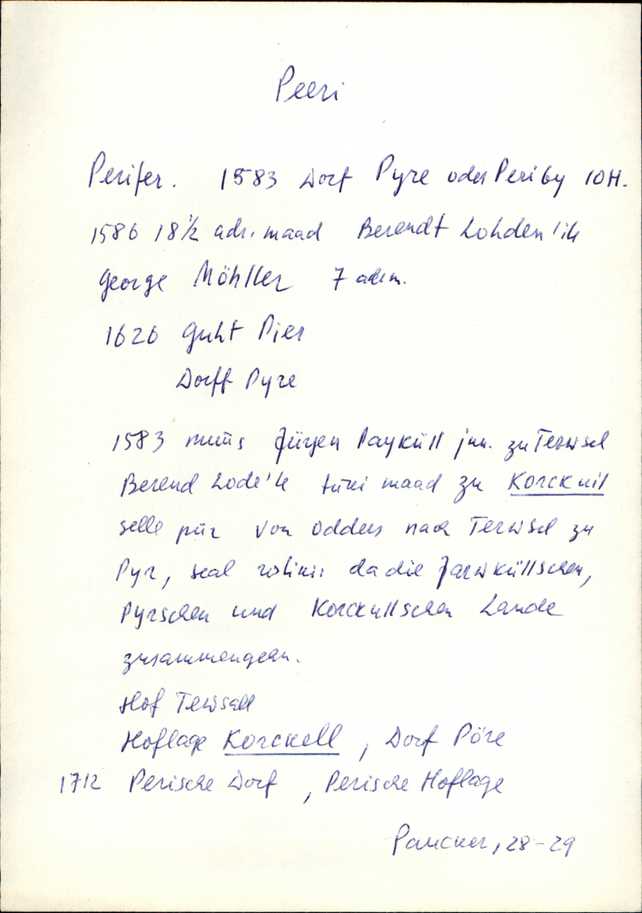 Peeri
Perifer. 1583 Dorf Pyre oder Periby 10H.
1586 18½ adr. maad Berendt Lohden'ile
George Möhller 7 adrm.
1626 Guht Pier
Dorff Pyre
1583 müüs Jürgen Payküll jun. zu Terwsel
Berend Lode'le tüki maad zu Korckuil
selle piir von Odders nach Terwsel zu
Pyr, seal ristinis da die Jarwküllschen,
Pyrschen und Korckullschen Lande
zusammengehn.
Hof Tewsall
Hoflage Korckell, Dorf Pöre
1712 Perische Dorf, Perische Hoflage
Paucker, 28-29